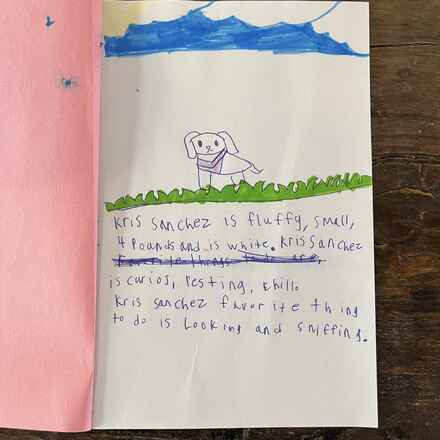 Kris Sanchez is fluffy, small,
4 pounds and is white. Kris Sanchez
Favorite things to do are,
is curios, resting, chill.
Kris Sanchez favorite thing
to do is Looking and sniffing.